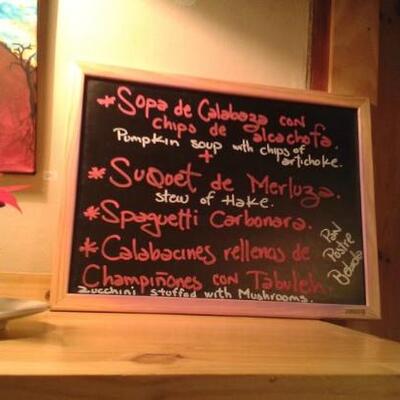 *Sopa de Calabaza con
chips de alcachofa.
Pumpkin soup with chips of
artichoke.
+
*Suquet de Merluza.
stew of Hake.
*Spaguetti Carbonara.
*Calabacines rellenos de
Champiñones con Tabuleh.
Zucchini stuffed with Mushrooms.
Pan
Postre
Bebida